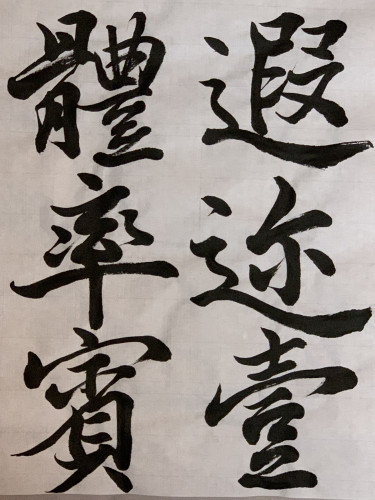 遐迩壹
體率賓